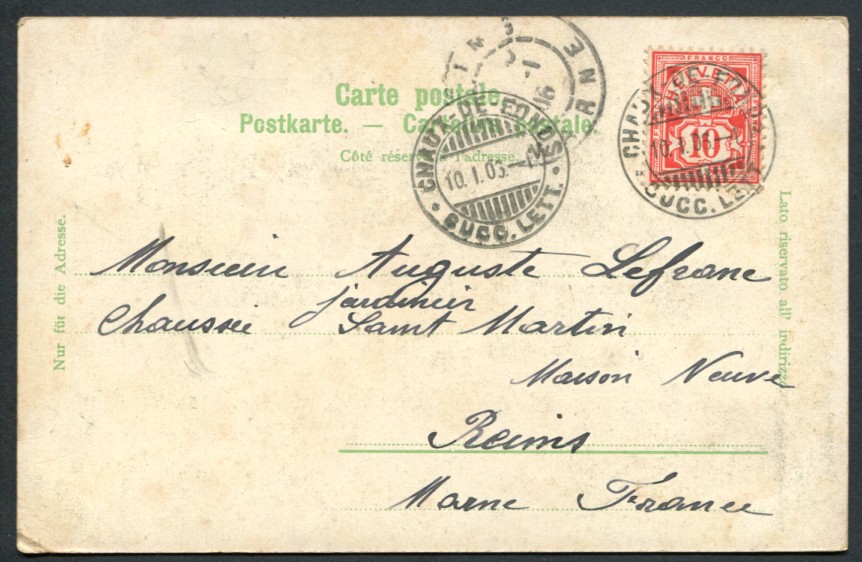 Carte postale.
Postkarte. — Cartolina postale.
Côté réservé à l'adresse.
CHAUX-DE-FONDS
10. I. 03.
SUCC. LETT.
FRANCO
HELVETIA
10
CHAUX-DE-FONDS
10. I. 03.
SUCC. LETT.
Nur für die Adresse.
Lato riservato all' indirizzo.
Monsieur Auguste Lefranc
jardinier
Chaussée Saint Martin
Maison Neuve
Reims
Marne France